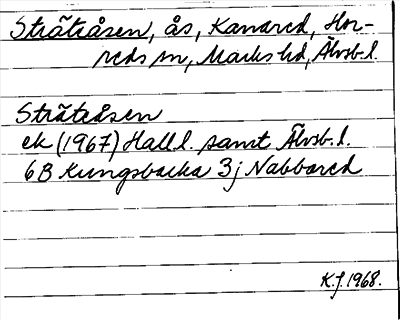 Sträteåsen, ås, Kanared, Hor-
reds sn, Marks hd, Älvsb.l.
Sträteåsen
ek (1967) Hall.l. samt Älvsb.l.
6B Kungsbacka 3j Nabbared
K.J. 1968.